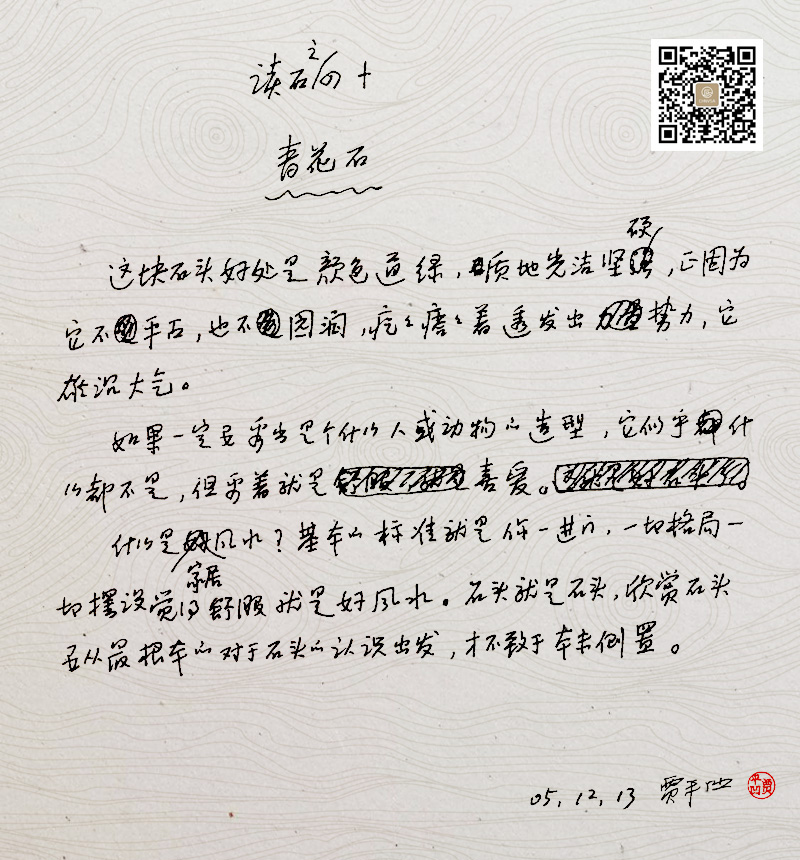 读石之四十
青花石
这块石头好处是颜色道绿，质地光洁坚硬，正因为
它不平正，也不圆润，疙疙瘩瘩着透发出势力，它
雄沉大气。
如果一定要看出是个什么人或动物的造型，它似乎什
么都不是，但看着就是喜爱。
什么是好风水？基本的标准就是你一进门，一切格局一
切摆设觉得家居舒服就是好风水。石头就是石头，欣赏石头
从最根本的对于石头的认识出发，才不致于本末倒置。
05.12.13 贾平凹
贾平凹